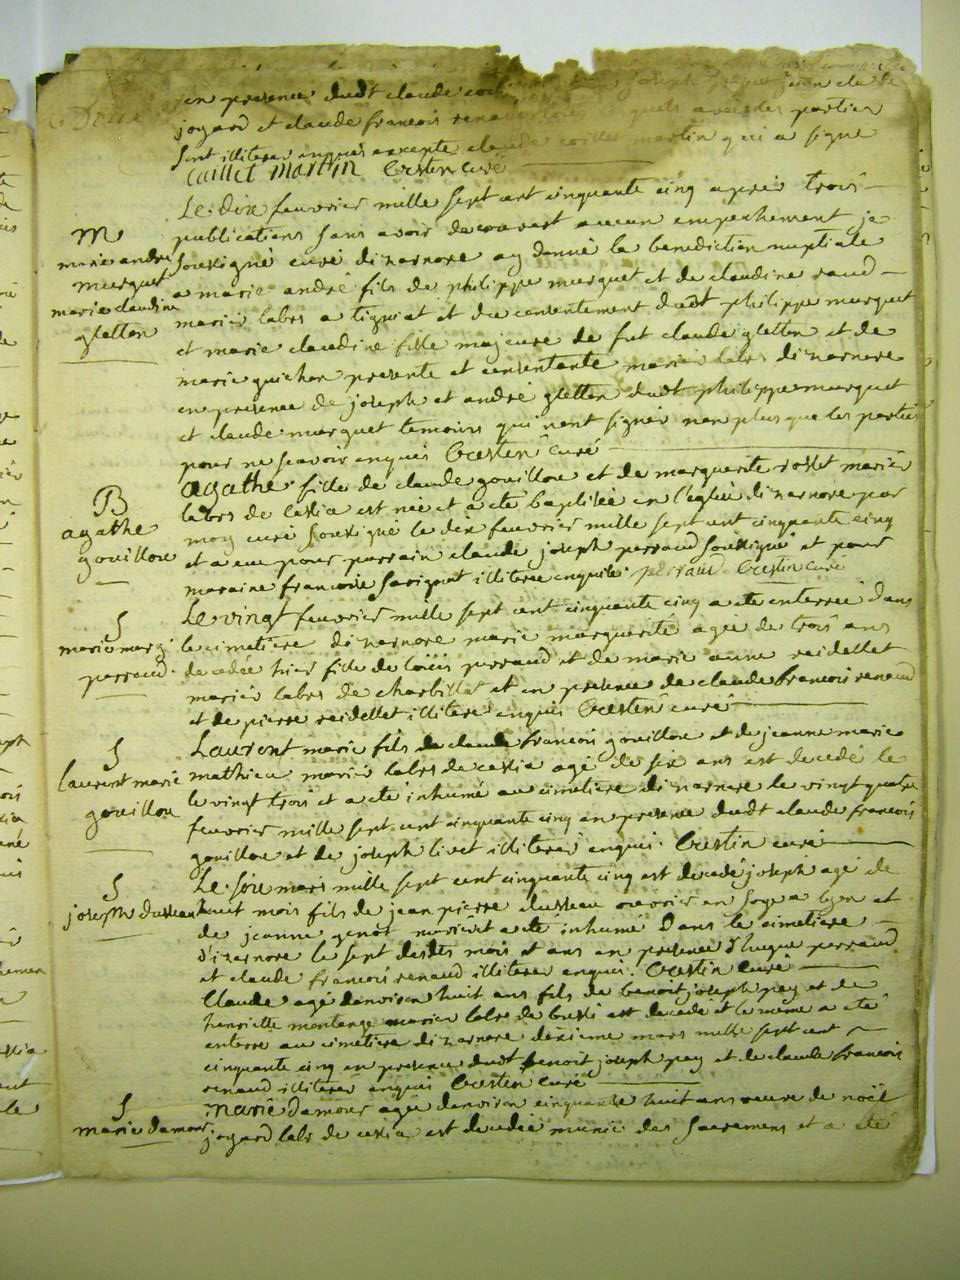 en presence dudt claude
joyard et claude francois partien
sont illiteres enquis excepte claude martin qui a signe
Caillet martin Crestin curé
M
marie andre
murguet
marie claudine
gletton
Le dix feuvrier mille sept cent cinquante cinq apres trois
publications sans avoir decouvert aucun empechement je
soussigné curé dizernore ay donné la benediction nuptiale
a marie andré fils de philippe murguet et de claudine raud
mariés labrs a tigniat et du consentement dudt philippe murguet
et marie claudine fille majeure de fut claude gletton et de
marie guichon presente et consentante mariés labrs dizernore
en presence de joseph et andré gletton dudt philippe murguet
et claude murguet temoins qui n'ont signés non plus que les parties
pour ne scavoir enquis Crestin curé
B
agathe
gouillou
agathe fille de claude gouillou et de marguerite rosset mariés
labrs de cessia est née et a été baptisée en l'eglise dizernore par
moy curé soussigné le dix feuvrier mille sept cent cinquante cinq
et a eu pour parrain claude joseph perraud soussigné et pour
maraine francoise savignat illiteree enquise perraud Crestin curé
S
marie marg:
perraud
Le vingt feuvrier mille sept cent cinquante cinq a ete enterrée dans
le cimetiere dizernore marie marguerite agée de trois ans
decedée hier fille de loüis perraud et de marie anne reidellet
mariés labrs de charbillat et en presence de claude francois renaud
et de pierre reidellet illiteres enquis Crestin curé
S
laurent marie
gouillou
Laurent marie fils de claude francois gouillou et de jeanne marie
mathieu mariés labrs de cessia agé de six ans est decedé le
le vingt trois et a ete inhumé au cimetiere dizernore le vingt quatre
feuvrier mille sept cent cinquante cinq en presence dudt claude francois
gouillou et de joseph livet illiteres enquis Crestin curé
S
joseph dusseau
Le six mars mille sept cent cinquante cinq est decedé joseph agé de
huit mois fils de jean pierre dusseau ouvrier en soye a lyon et
de jeanne genot mariés et a été inhumé dans le cimetiere
dizernore le sept desdts mois et ans en presence d'hugue perraud
et claude francois renaud illiteres enquis. Crestin curé
Claude agé denviron huit ans fils de benoit joseph pey et de
henriette montange mariés labrs de bussi est decedé et le même a été
enterré au cimetiere dizernore dixieme mars mille sept cent
cinquante cinq en presence dudt benoit joseph pey et de claude francois
renaud illiteres enquis Crestin curé
S
marie damour
marie damour agée denviron cinquante huit ans veuve de noël
joyard labr de cessia est decedée munie des sacremens et a été